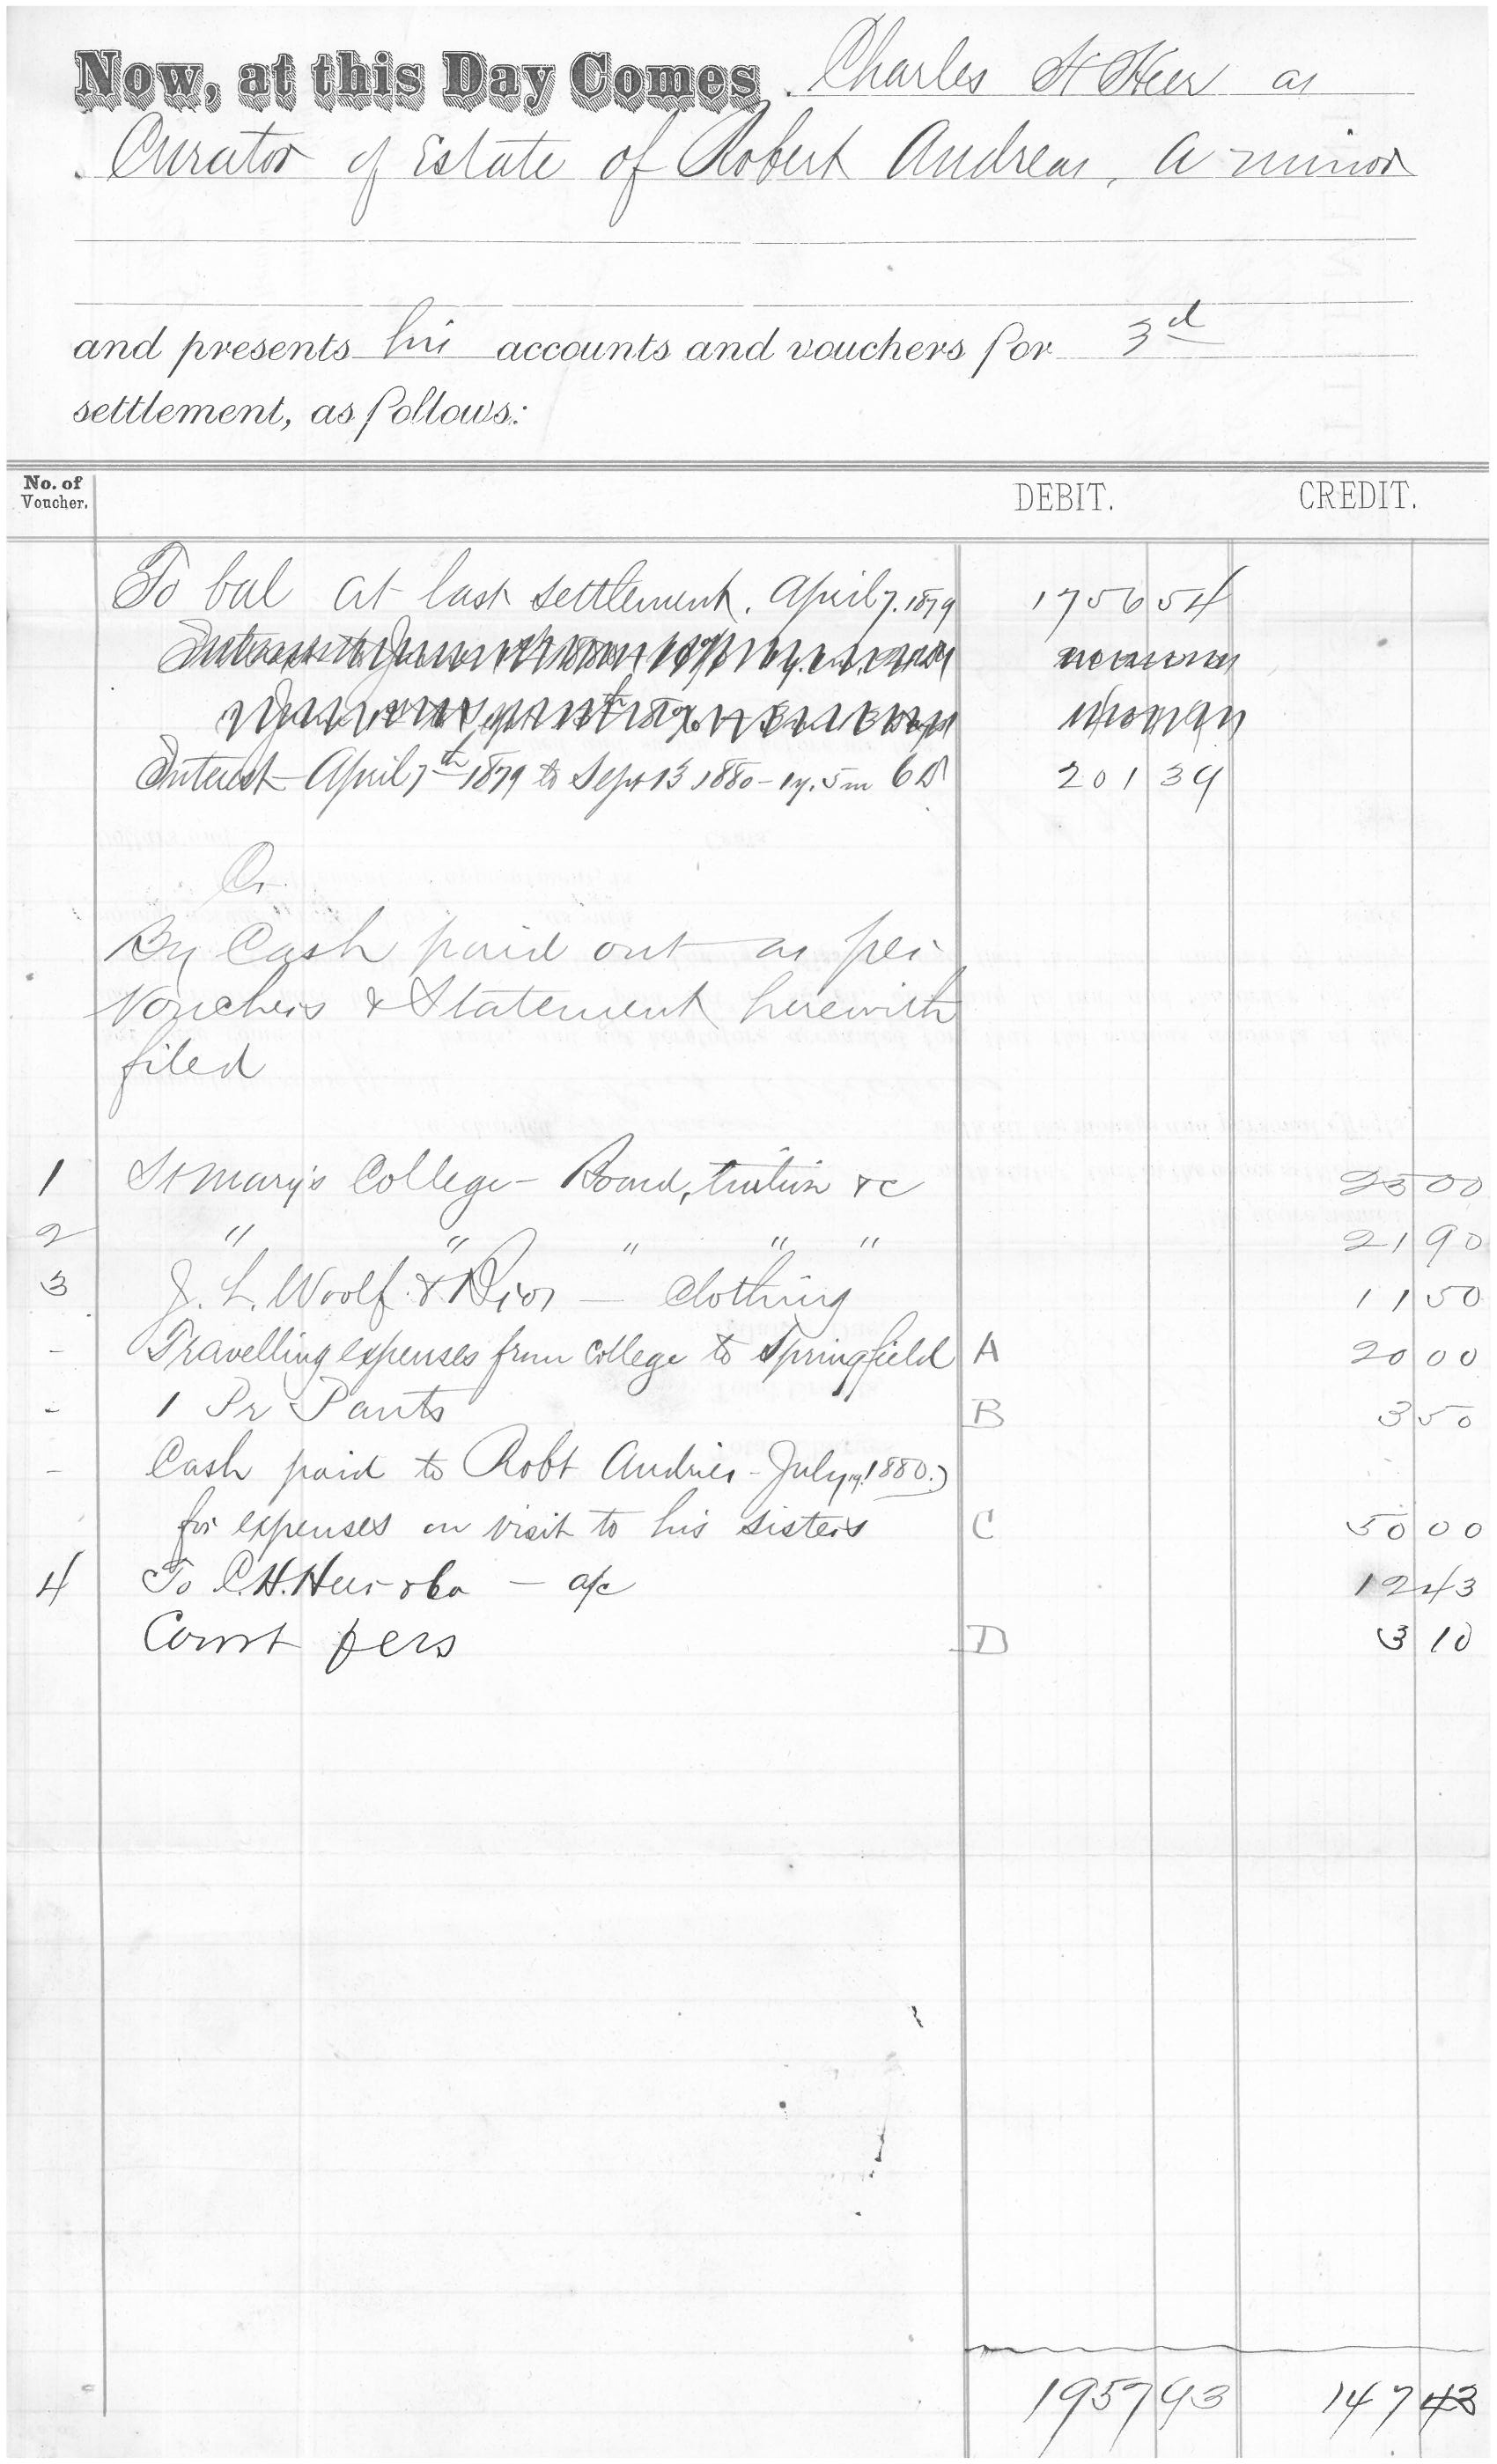 Now, at this Day Comes Charles H Heer as
Curator of Estate of Robert Andreas, a minor
and presents his accounts and vouchers for 3d
settlement, as follows:
No. of Voucher. DEBIT. CREDIT.
To bal at last settlement. April 7. 1879 1756 54
Interest April 7th 1879 to Sept 13 1880 - 1y. 5m 6D 201 39
Cr
By Cash paid out as per
Vouchers & Statement herewith
filed
1 St Mary's College - Board, tuition &c 25 00
2 " " " " " 21 90
3 J. L. Woolf & Bros - Clothing 11 50
- Travelling expenses from College to Springfield A 20 00
- 1 Pr Pants B 3 50
- Cash paid to Robt Andries - July 1880.
for expenses on visit to his sisters C 50 00
4 To C. H. Heer & Co - a/c 12 43
Court fees D 3 10
1957 93 147 43